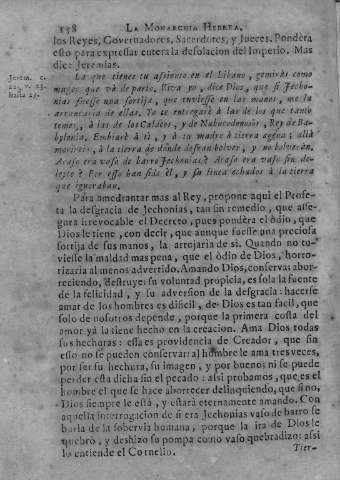 158 LA MONARCHIA HEBREA.
los Reyes, Governadores, Sacerdotes, y Jueces. Pondera
esto para expressar entera la desolacion del Imperio. Mas
dice Jeremias.
Jerem. c.
22. v. 23.
hasta 29.
La que tienes tu assiento en el Libano, gemiràs como
muger que và de parto. Vivo yo, dice Dios, que si Jecho-
nias fuesse una sortija, que tuviesse en las manos, me la
arrancaria de ellas. Yo te entregarè à las de los que tanto
temes, à las de los Caldeos, y de Nabucodonosor, Rey de Ba-
bylonia, Embiarè à ti, y à tu madre à tierra agena; allà
morireis, à la tierra de dònde desean bolver, y no bolveràn.
Acaso era vaso de barro Jechonias? Acaso era vaso sin de-
leyte? Por esso han sido èl, y su linea echados à la tierra
que ignoraban.
Para amedrantar mas al Rey, propone aqui el Profe-
ta la desgracia de Jechonias, tan sin remedio, que asse-
gura irrevocable el Decreto, pues pondèra el òdio, que
Dios le tiene, con decir, que aunque fuesse una preciosa
sortija de sus manos, la arrojaria de sì. Quando no tu-
viesse la maldad mas pena, que el òdio de Dios, horro-
rizaria al menos advertido. Amando Dios, conserva: abor-
reciendo, destruye: su voluntad propicia, es sola la fuente
de la felicidad, y su adversion de la desgracia: hacerse
amar de los hombres es dificil, de Dios es tan facil, que
solo de nosotros depende, porque la primera costa del
amor yà la tiene hecho en la creacion. Ama Dios todas
sus hechuras: esta es providencia de Criador, que sin
esso no se pueden conservar: al hombre le ama tres veces,
por ser su hechura, su imagen, y por bueno: ni se puede
perder esta dicha sin el pecado: assi probamos, que es el
hombre el que se hace aborrecer delinquiendo, que si no,
Dios siempre le està, y estarà eternamente amando. Con
aquella interrogacion de si era Jechonias vaso de barro se
burla de la sobervia humana, porque la ira de Dios le
quebrò, y deshizo su pompa como vaso quebradizo: assi
lo entiende el Cornelio.
Tier-